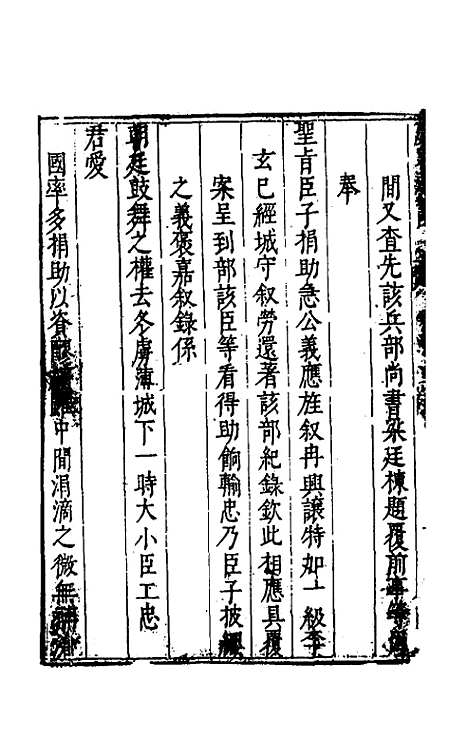 間又查先該兵部尚書梁廷棟題覆前事等因
奉
聖旨臣子捐助急公義應旌叙冉興讓特加一級李
玄已經城守叙勞還著該部紀錄欽此相應具覆
案呈到部該臣等看得助餉輸忠乃臣子披
之義褒嘉叙錄係
朝廷鼓舞之權去冬虜薄城下一時大小臣工忠
君愛
國率多捐助以咨中間涓滴之微無